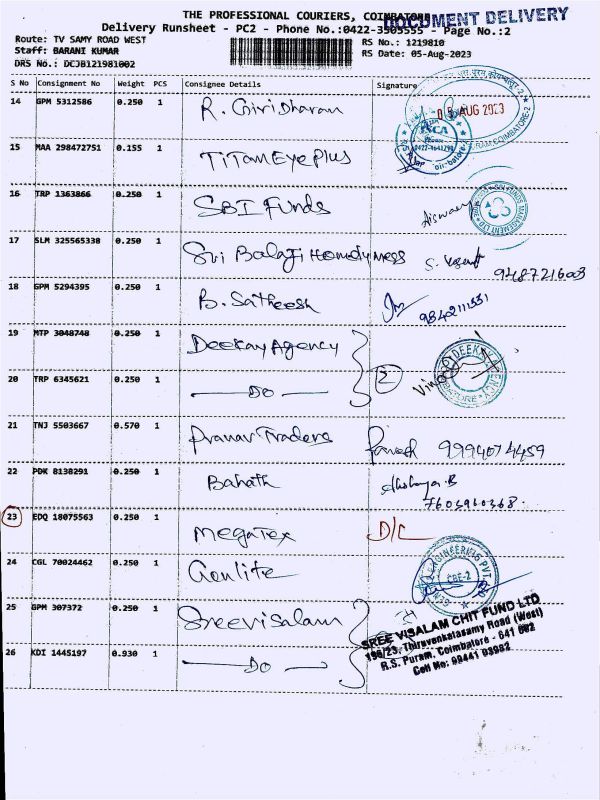 THE PROFESSIONAL COURIERS, COIMBATORE
DOCUMENT DELIVERY
Delivery Runsheet - PC2 - Phone No.:0422-3505555 - Page No.:2
Route: TV SAMY ROAD WEST
RS No.: 1219810
Staff: BARANI KUMAR
RS Date: 05-Aug-2023
DRS No.: DCJB121981002
S No Consignment No Weight PCS Consignee Details Signature
14 GPM 5312586 0.250 1 R. Giridharan
05 AUG 2023
15 MAA 298472751 0.155 1 Titan Eye Plus
16 TRP 1363866 0.250 1 SBI Funds
17 SLM 325565338 0.250 1 Sri Balaji Homely mess 9487216003
18 GPM 5294395 0.250 1 B. Satheesh 9842111331
19 MTP 3048748 0.250 1 Deekay Agency
20 TRP 6345621 0.250 1 — Do — 2
21 TNJ 5503667 0.570 1 Pranav Traders 9994074459
22 PDK 8138291 0.250 1 Bahath
7603910368.
23 EDQ 18075563 0.250 1 Megatex D/C
24 CGL 70024462 0.250 1 Genlite
CBE-2
25 GPM 307372 0.250 1 Sreevisalam
SREE VISALAM CHIT FUND LTD
196/23, Thiruvenkatasamy Road (West)
R.S. Puram, Coimbatore - 641 002
Cell No: 99441 03982
26 KDI 1445197 0.930 1 — Do —